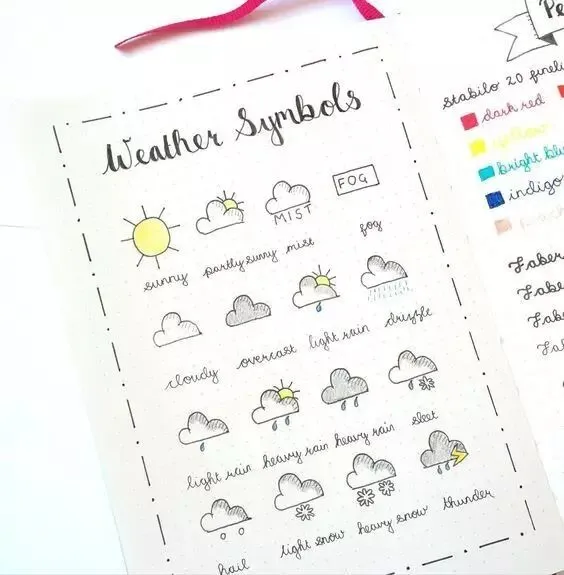 Weather Symbols
MIST
FOG
sunny partly sunny mist fog
cloudy overcast light rain drizzle
light rain heavy rain heavy rain sleet
hail light snow heavy snow thunder
Pe
Stabilo 20 fineli
dark red
yellow
bright blu
indigo
peach
Faber
Fabe
Fabe
Fal